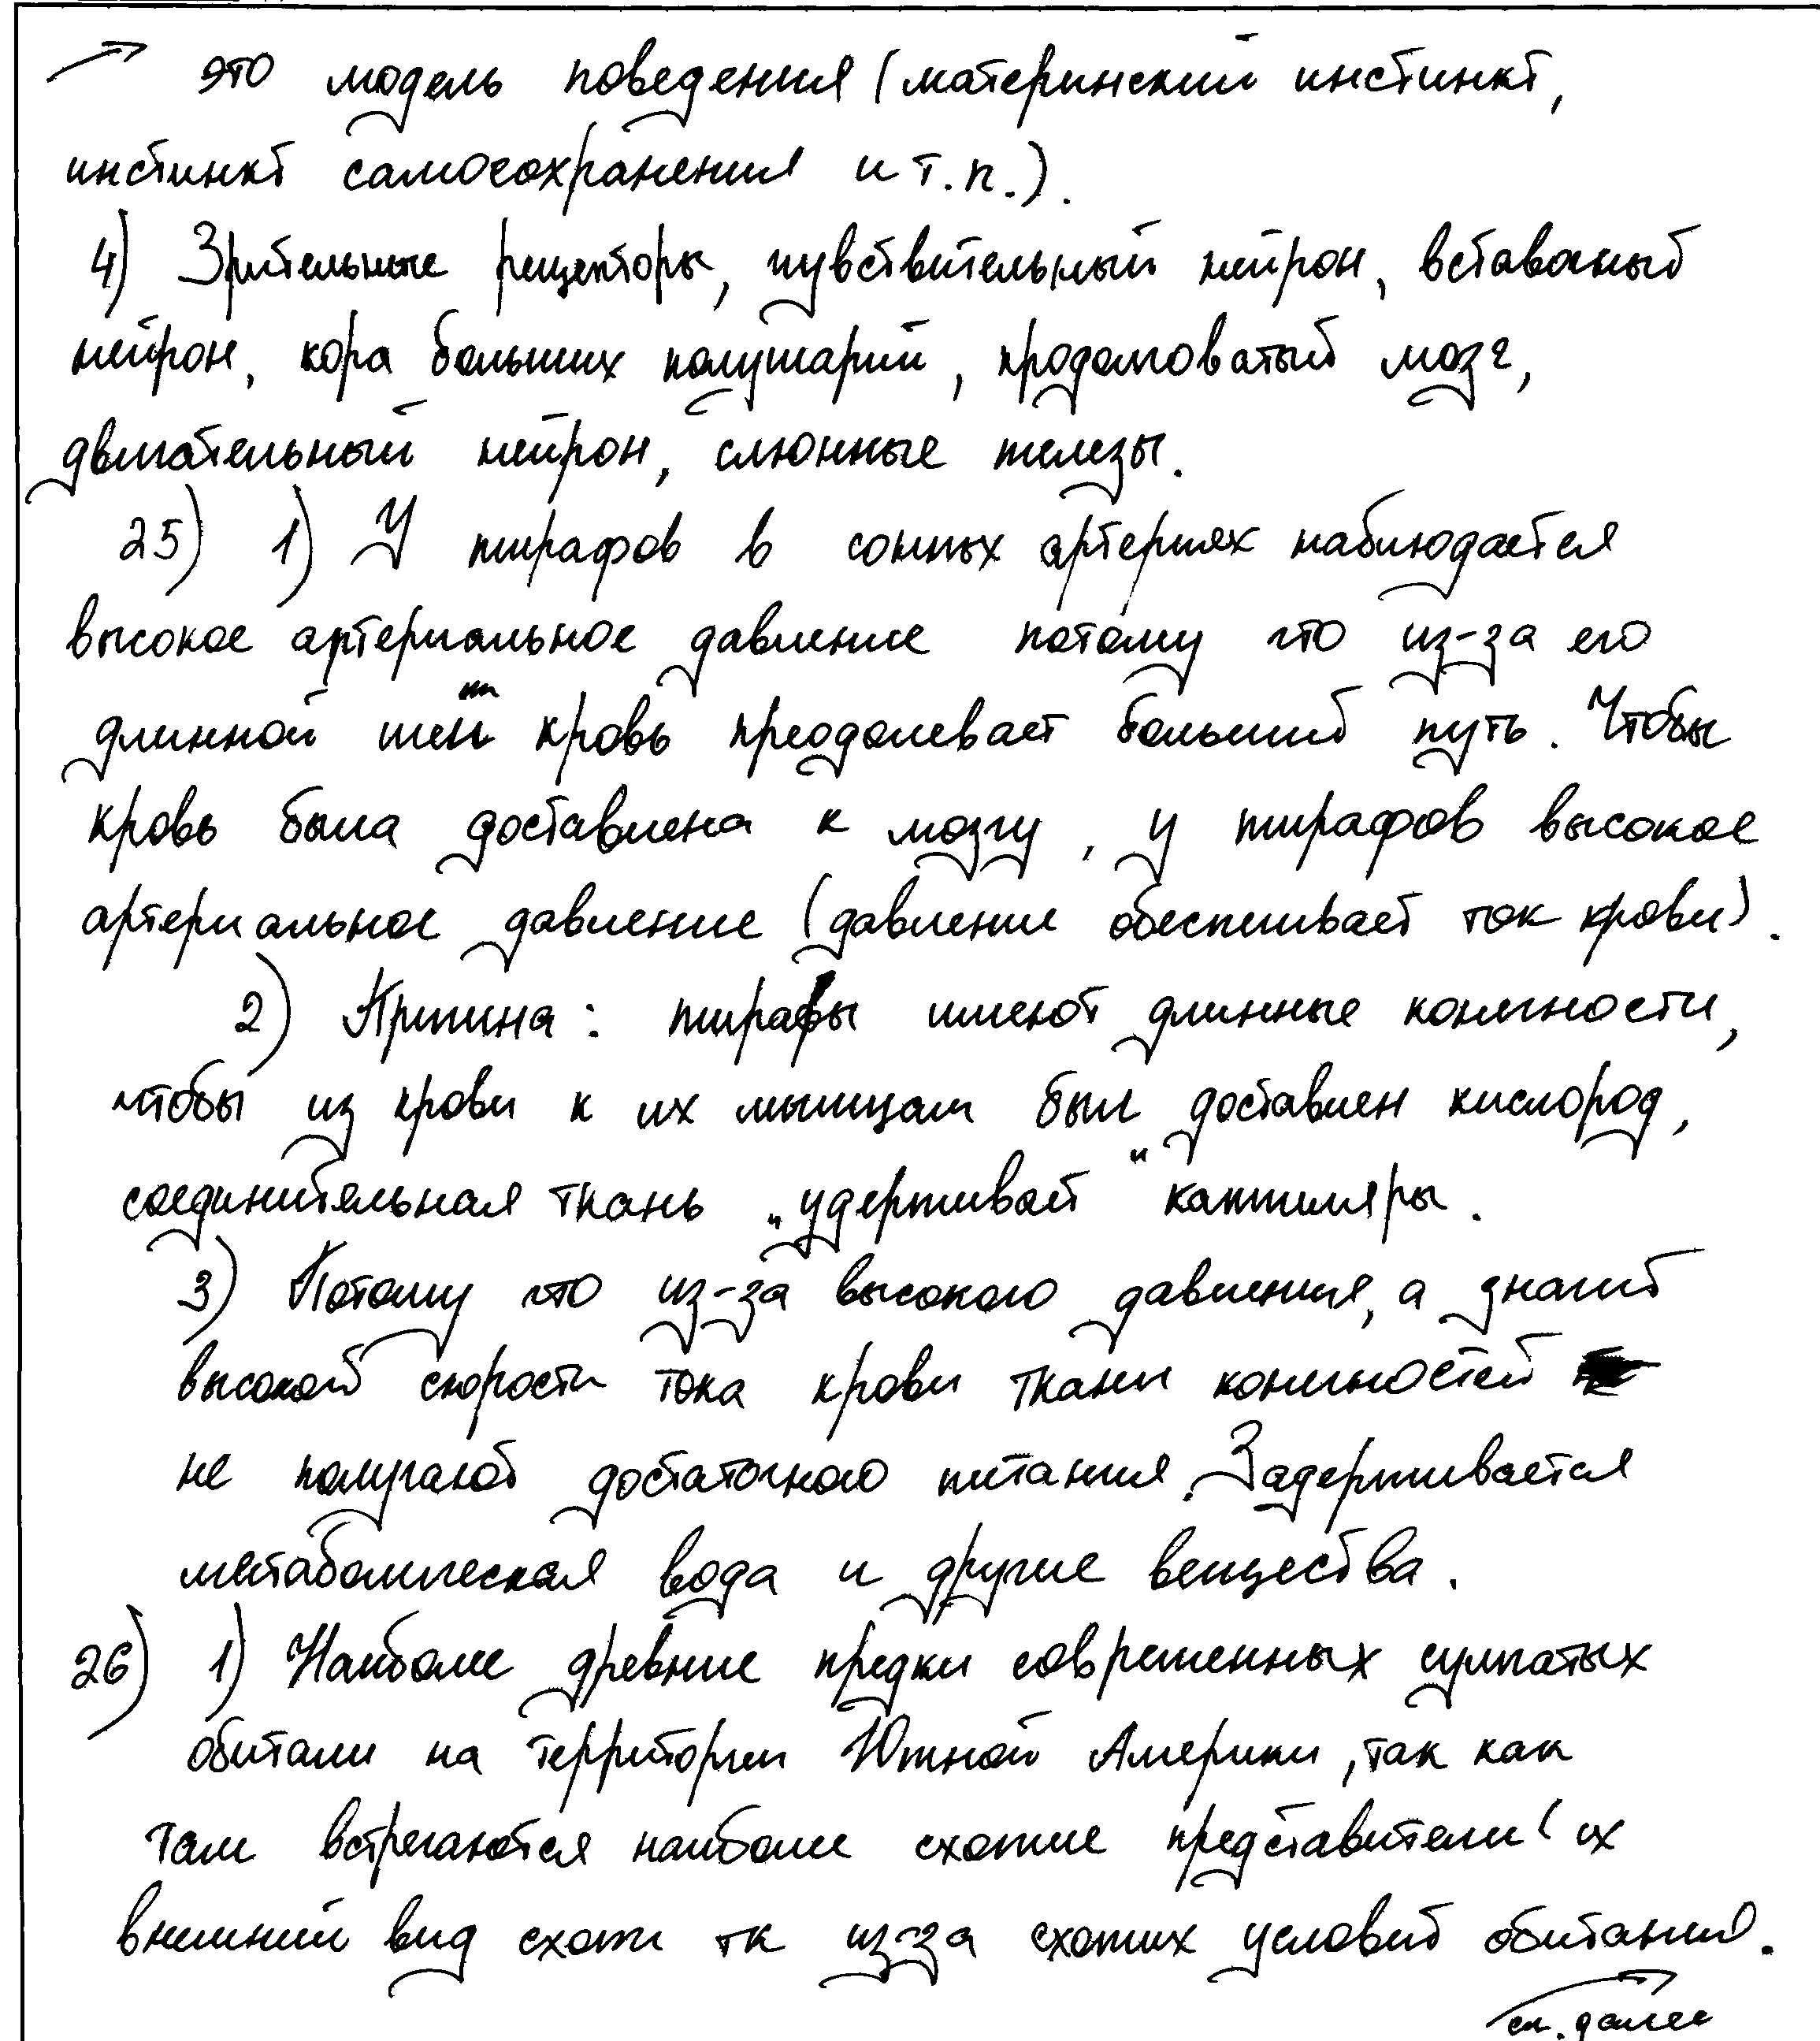 → это модель поведения (материнский инстинкт,
инстинкт самосохранения и т.п.).
4) Зрительные рецепторы, чувствительный нейрон, вставочный
нейрон, кора больших полушарий, продолговатый мозг,
двигательный нейрон, слюнные железы.
25) 1) У жирафов в сонных артериях наблюдается
высокое артериальное давление потому что из-за его
длинной шеи кровь преодолевает больший путь. Чтобы
кровь была доставлена к мозгу, у жирафов высокое
артериальное давление (давление обеспечивает ток крови).
2) Причина: жирафы имеют длинные конечности,
чтобы из крови к их мышцам был доставлен кислород,
соединительная ткань „удерживает“ капилляры.
3) Потому что из-за высокого давления, а значит
высокой скорости тока крови ткани конечностей
не получают достаточного питания. Задерживается
метаболическая вода и другие вещества.
26) 1) Наиболее древние предки современных сумчатых
обитали на территории Южной Америки, так как
там встречаются наиболее схожие представители (их
внешний вид схож тк из-за схожих условий обитания).
см. далее